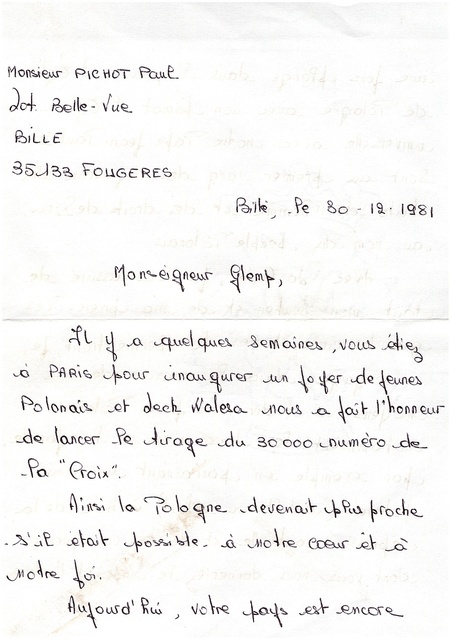 Monsieur PICHOT Paul
Lot. Belle-Vue
BILLE
35.133 FOUGERES
Billé, le 30-12-1981
Monseigneur Glemp,
Il y a quelques semaines, vous étiez
à PARIS pour inaugurer un foyer de jeunes
Polonais et Lech Walesa nous a fait l'honneur
de lancer le tirage du 30 000 numéro de
la "Croix".
Ainsi la Pologne devenait plus proche
s'il était possible. à notre coeur et à
notre foi.
Aujourd'hui, votre pays est encore